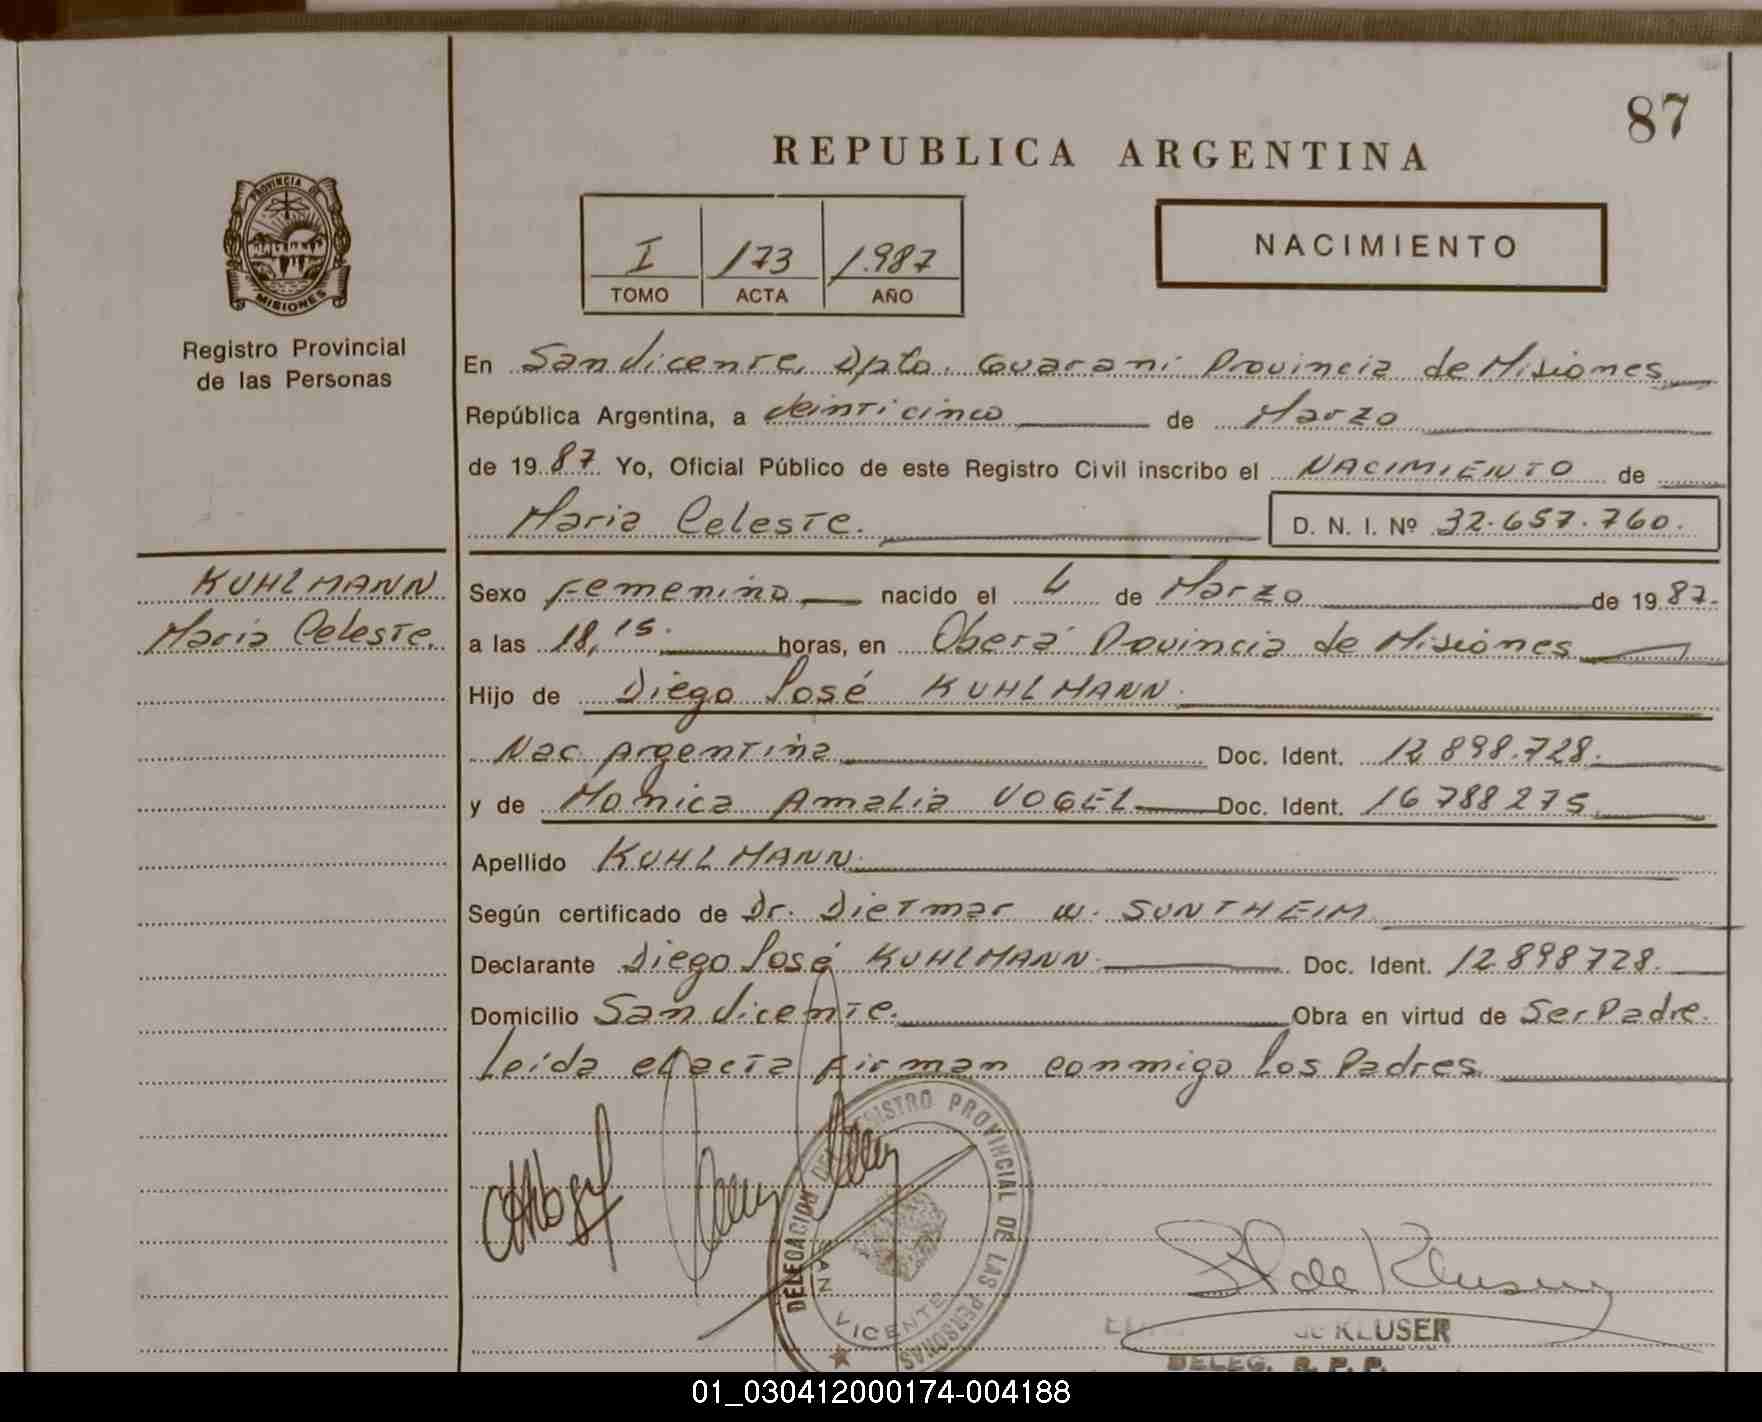 87
REPUBLICA ARGENTINA
PROVINCIA DE
MISIONES
Registro Provincial
de las Personas
I 173 1.987
TOMO ACTA AÑO
NACIMIENTO
En San Vicente, Dpto. Guarani Provincia de Misiones
República Argentina, a Veinticinco de Marzo
de 1987 Yo, Oficial Público de este Registro Civil inscribo el NACIMIENTO de
Maria Celeste. D. N. I. Nº 32.657.760.
KUHLMANN
Maria Celeste.
Sexo Femenino nacido el 4 de Marzo de 1987.
a las 18,15. horas, en Oberá Provincia de Misiones
Hijo de Diego José KUHLMANN.
Nac. Argentina Doc. Ident. 12.898.728.
y de Monica Amalia VOGEL Doc. Ident. 16788275
Apellido KUHLMANN.
Según certificado de Dr. Dietmar W. SUNTHEIM
Declarante Diego José KUHLMANN Doc. Ident. 12898728.
Domicilio San Vicente. Obra en virtud de Ser Padre.
Leída el acta firman conmigo los Padres
DELEGACION DEL REGISTRO PROVINCIAL DE LAS PERSONAS
SAN VICENTE
de Kluser
de KLUSER
DELEG. R. P. P.
01_030412000174-004188